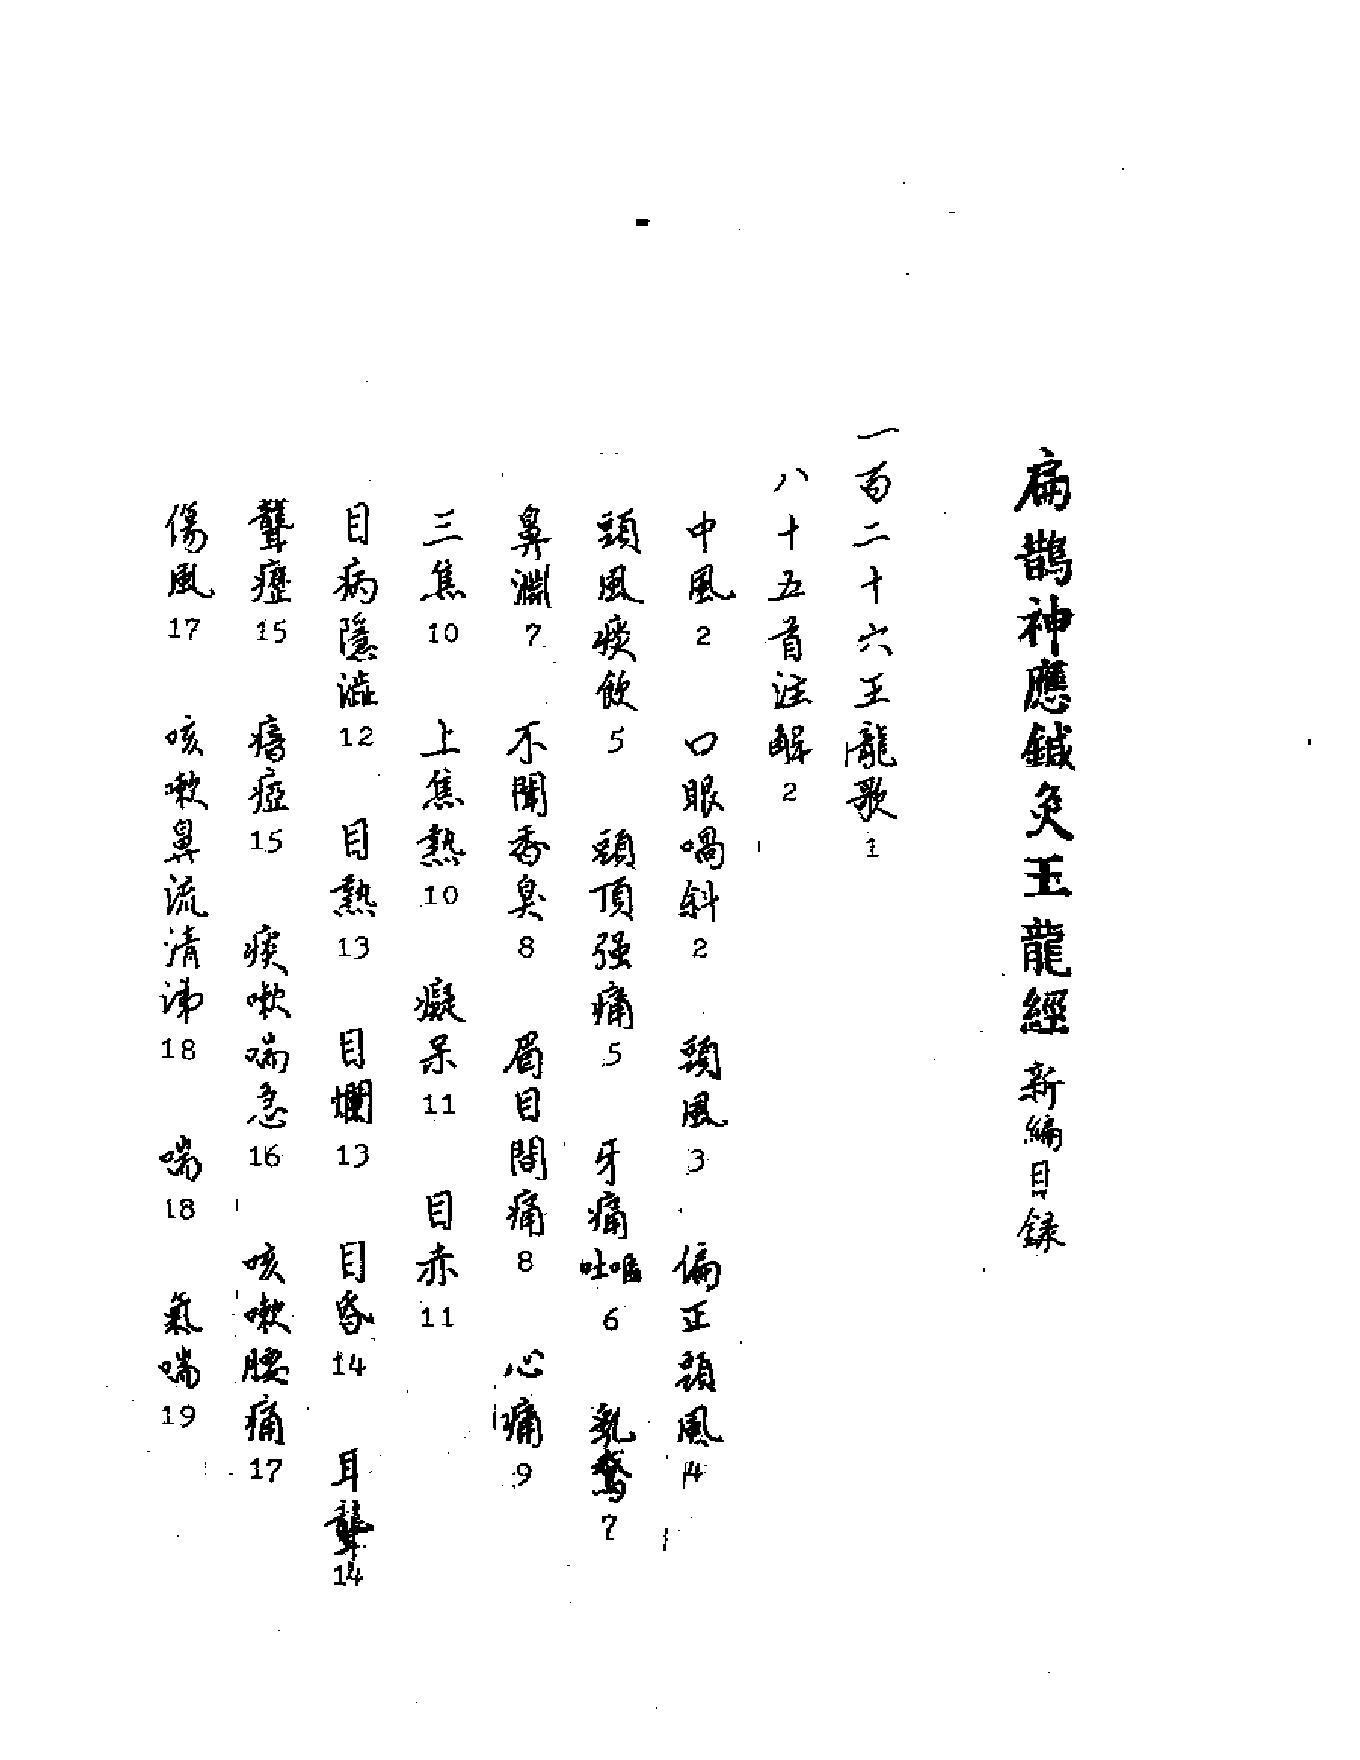 扁鵲神應鍼灸玉龍經 新編目錄
一百二十六玉龍歌 1
八十五首注解 2
中風 2 口眼喎斜 2 頭風 3 偏正頭風 4
頭風痰飲 5 頭頂强痛 5 牙痛 6 乳鵞 7
鼻淵 7 不聞香臭 8 眉目間痛 8 心痛 9
三焦 10 上焦熱 10 癡呆 11 目赤 11
目病隱澁 12 目熱 13 目爛 13 目昏 14 耳聾 14
聾瘂 15 瘖瘂 15 痰嗽喘急 16 咳嗽腰痛 17
傷風 17 咳嗽鼻流清涕 18 喘 18 氣喘 19